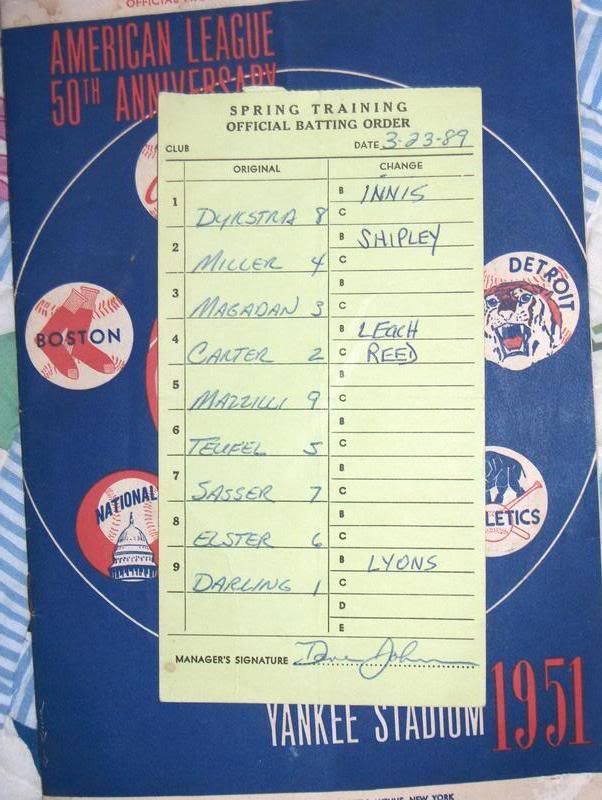 OFFICIAL
AMERICAN LEAGUE
50TH ANNIVERSARY
SPRING TRAINING
OFFICIAL BATTING ORDER
CLUB DATE 3-23-89
ORIGINAL CHANGE
1 DYKSTRA 8 B INNIS
C
2 MILLER 4 B SHIPLEY
C
3 MAGADAN 3 B
C
4 CARTER 2 B LEACH
C REED
5 MAZZILLI 9 B
C
6 TEUFEL 5 B
C
7 SASSER 7 B
C
8 ELSTER 6 B
C
9 DARLING 1 B LYONS
C
D
E
MANAGER'S SIGNATURE Dave Johnson
BOSTON
DETROIT
NATIONAL
LETICS
YANKEE STADIUM 1951
NEW YORK